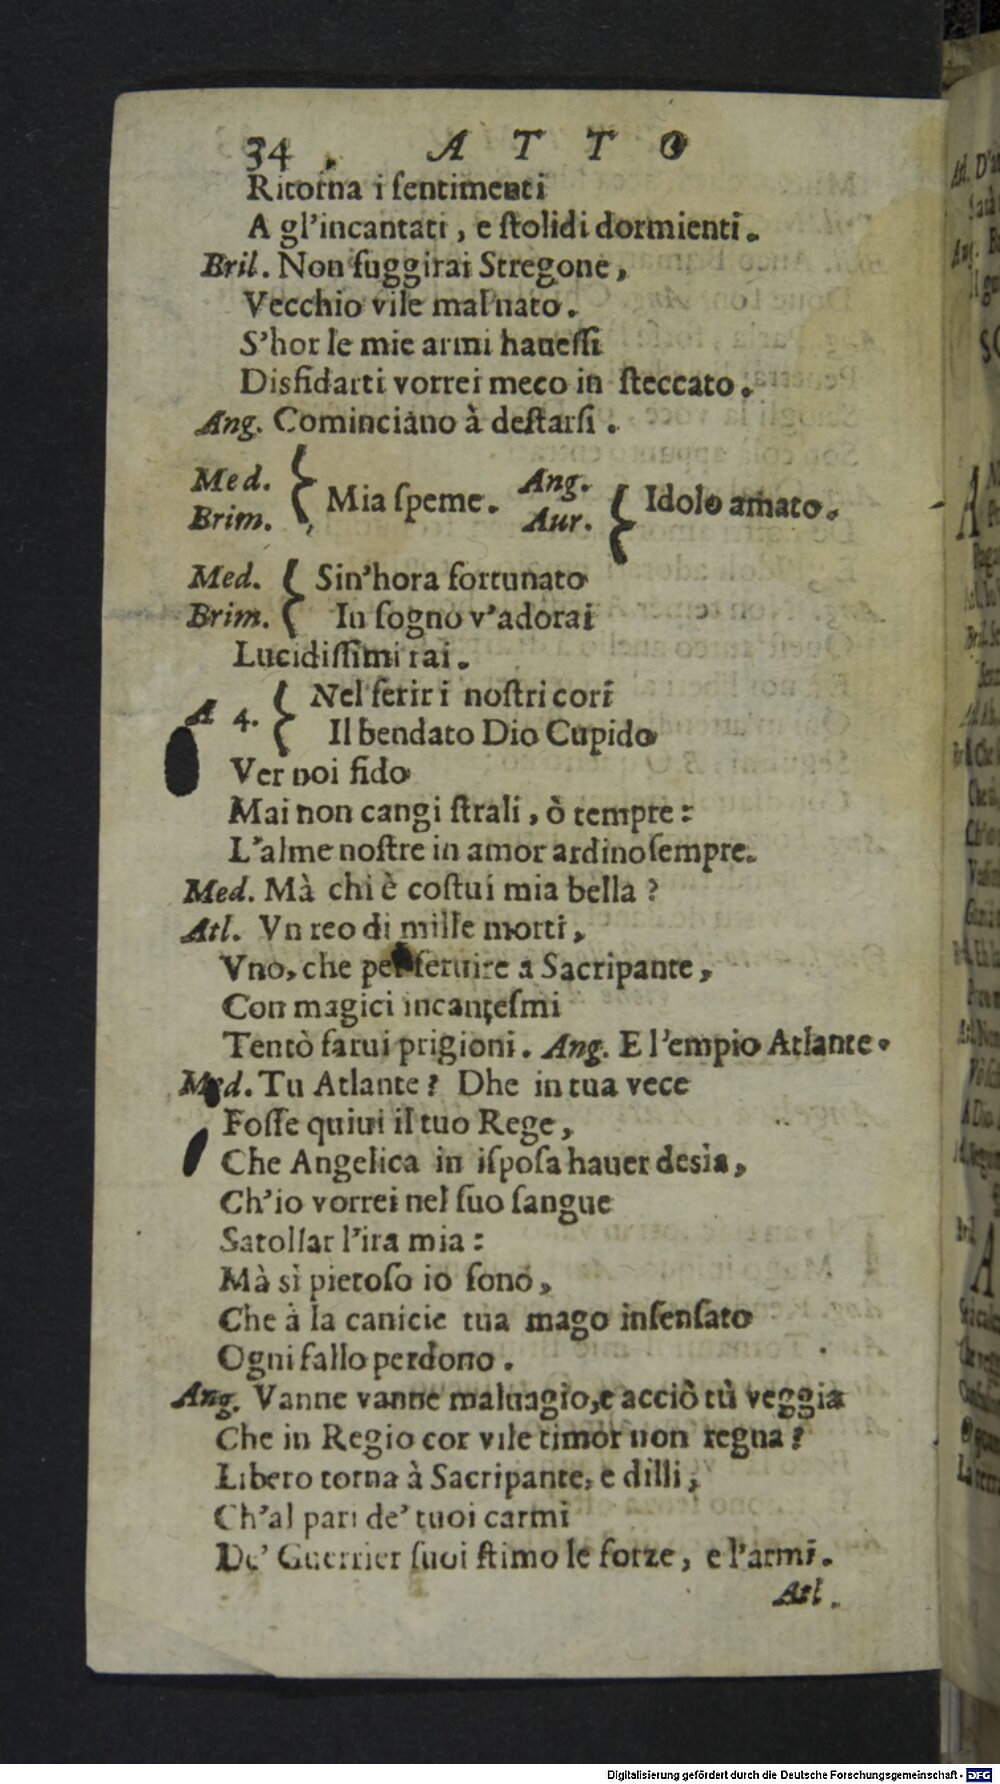 34 . ATTO
Ritorna i ſentimenti
A gl'incantati, e ſtolidi dormienti.
Bril. Non fuggirai Stregone,
Vecchio vile mal nato.
S'hor le mie armi haueſſi
Disfidarti vorrei meco in ſteccato.
Ang. Cominciano à deſtarſi.
Med. Brim. { Mia ſpeme. Ang. Aur. { Idolo amato.
Med. { Sin'hora fortunato
Brim. { In ſogno v'adorai
Lucidiſſimi rai.
A 4. { Nel ferir i noſtri cori
Il bendato Dio Cupido
Ver noi fido
Mai non cangi ſtrali, ò tempre:
L'alme noſtre in amor ardino ſempre.
Med. Mà chi è coſtui mia bella?
Atl. Vn reo di mille morti,
Vno, che per ſeruire a Sacripante,
Con magici incanteſmi
Tentò farui prigioni. Ang. E l'empio Atlante.
Med. Tu Atlante? Dhe in tua vece
Foſſe quiui il tuo Rege,
Che Angelica in iſpoſa hauer desìa,
Ch'io vorrei nel ſuo ſangue
Satollar l'ira mia:
Mà sì pietoſo io ſono,
Che à la canicie tua mago inſenſato
Ogni fallo perdono.
Ang. Vanne vanne maluagio, e acciò tù veggia
Che in Regio cor vile timor non regna?
Libero torna à Sacripante, e dilli,
Ch'al pari de' tuoi carmi
De' Guerrier ſuoi ſtimo le forze, e l'armi.
Atl.
Digitalisierung gefördert durch die Deutsche Forschungsgemeinschaft - DFG